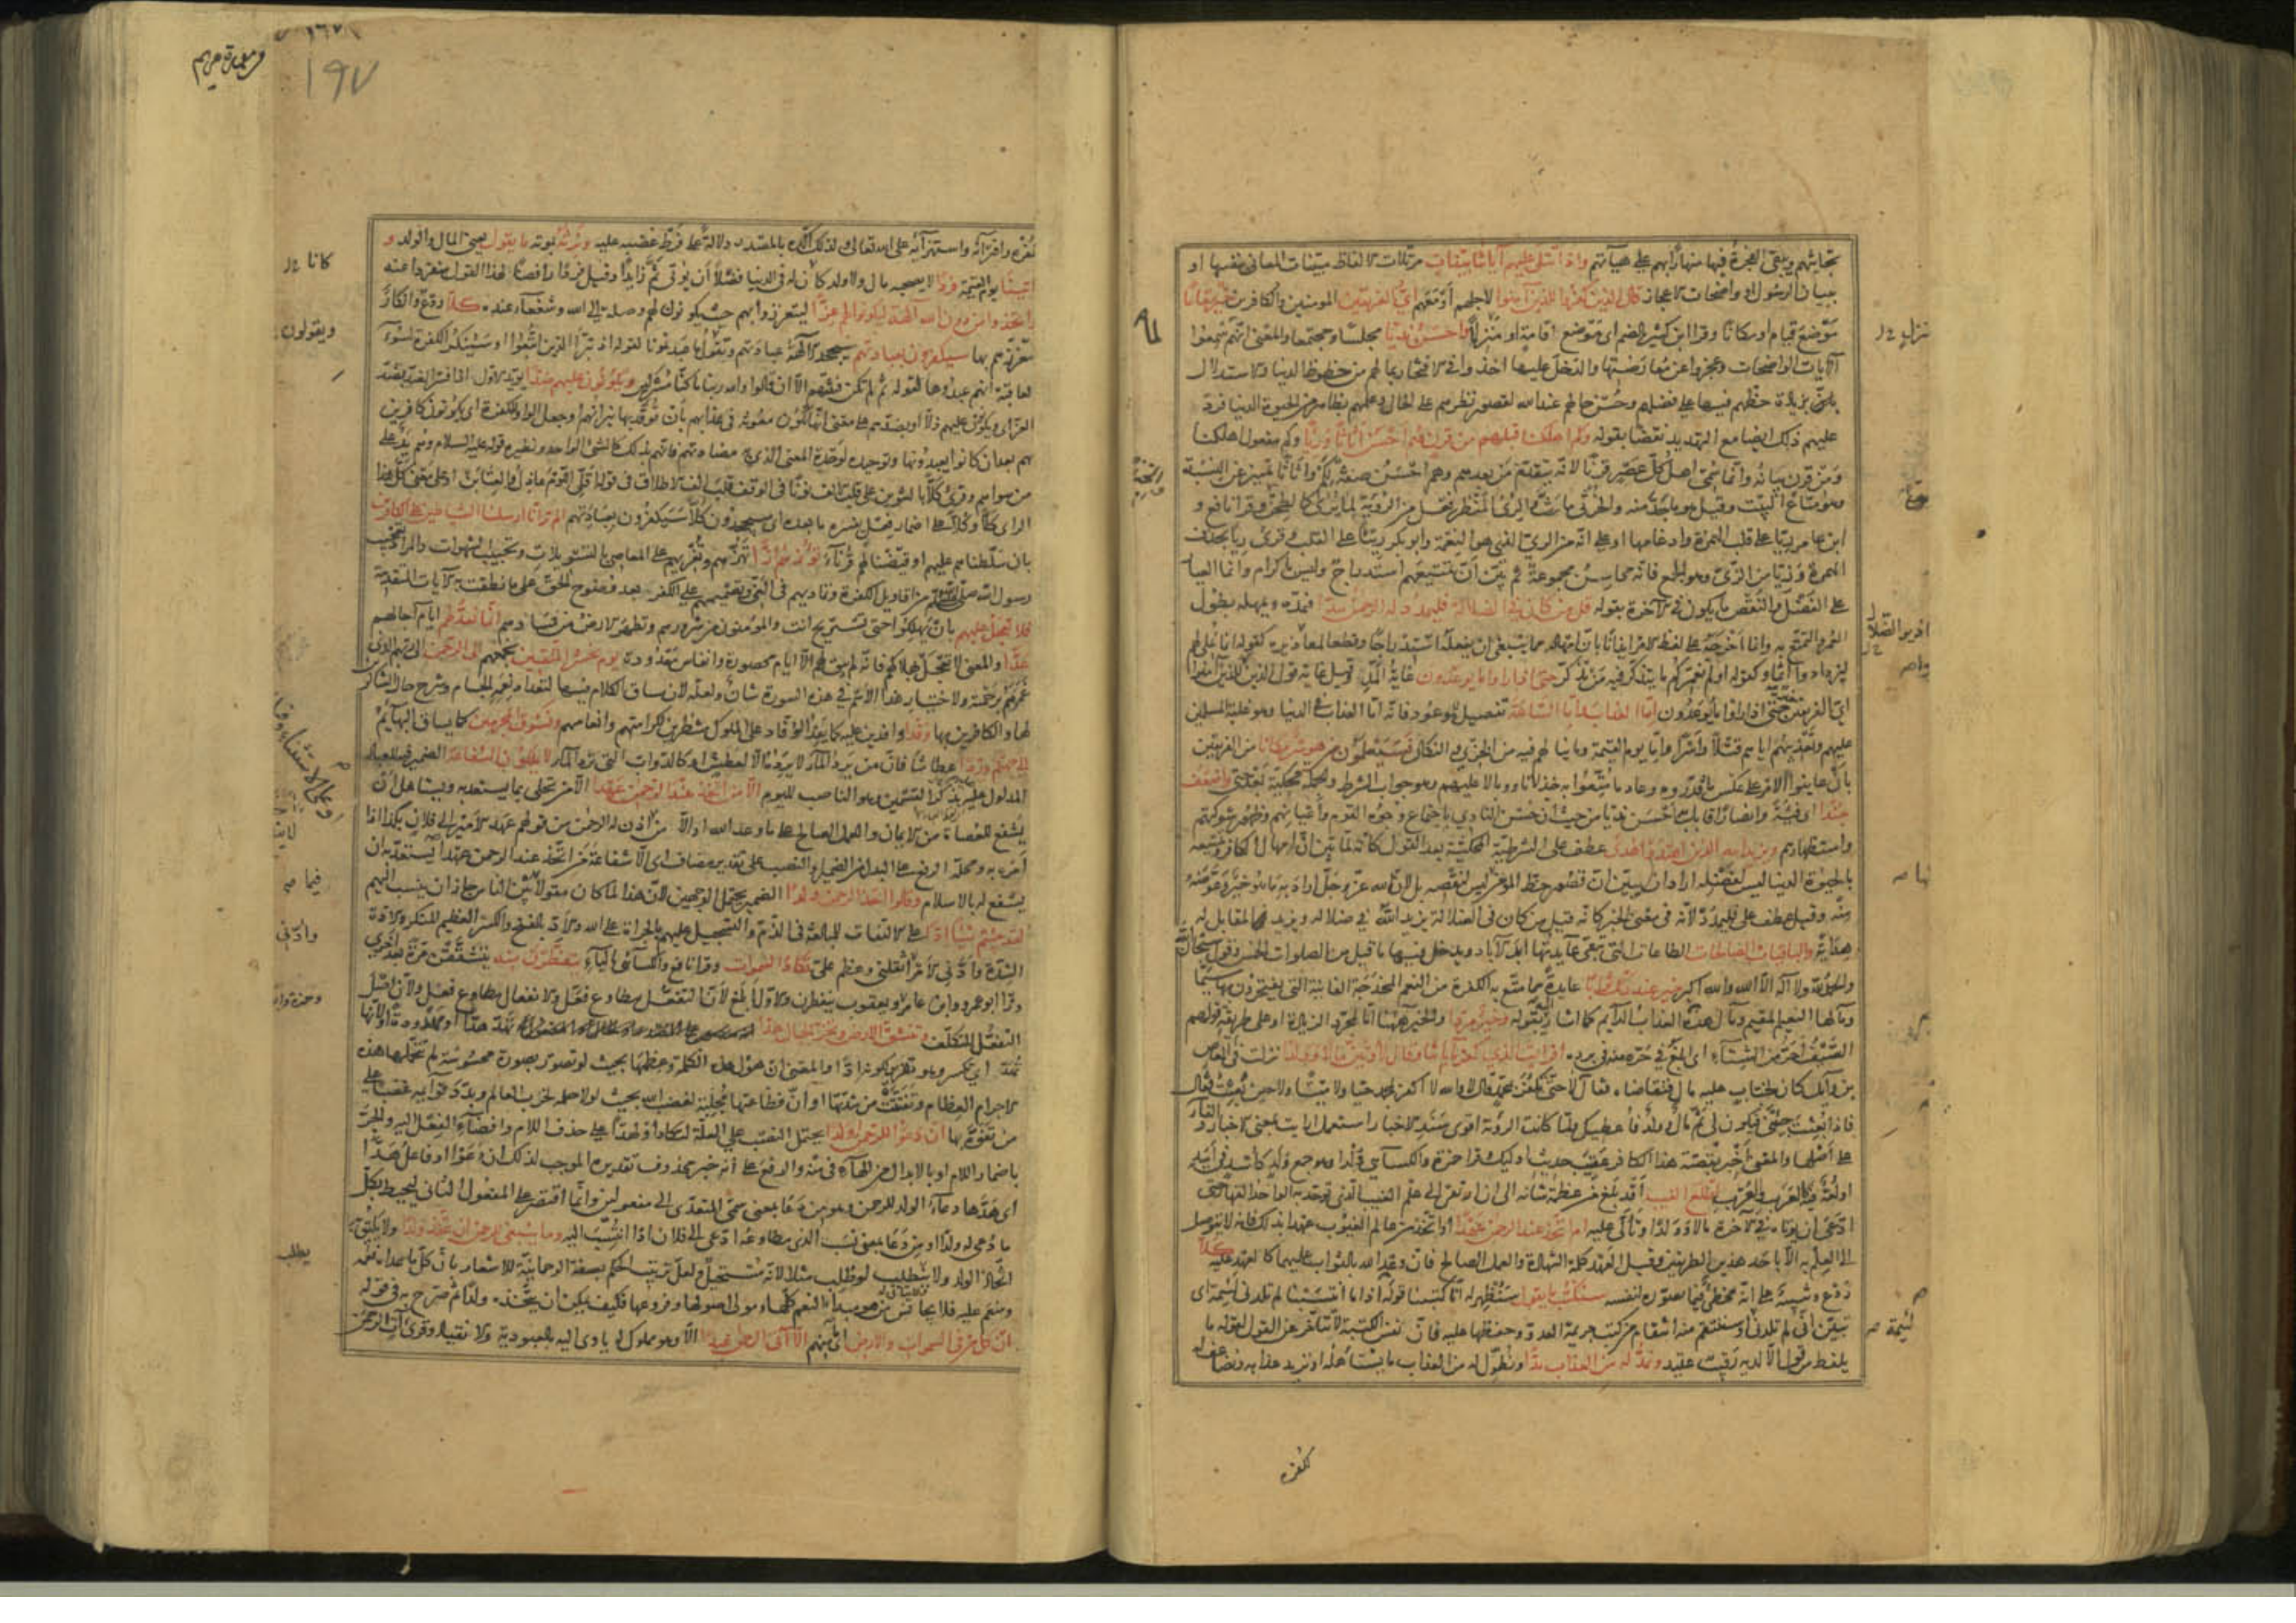 تجاثيهم ويبقى الفجرة فيها منهارا بهم على هيآتهم واذا تتلى عليهم آياتنا بينات مرتلات الالفاظ مبينات المعاني بنفسها او
ببيان الرسول او واضحات الاعجاز قال الذين كفروا للذين آمنوا لاجلهم او معهم اي الفريقين المؤمنين والكافرين خير مقاما
موضع قيام او مكانا وقرا ابن كثير بالضم اى موضع اقامة او منزل واحسن نديا مجلسا ومجتمعا والمعنى انهم لما سمعوا
الآيات الواضحات وعجزوا عن معارضتها والدخل عليها اخذوا في الافتخار بما لهم من حظوظ الدنيا والاستدلال
بزيادة حظهم فيها على فضلهم وحسن حالهم عند الله لقصور نظرهم على الحال وعلمهم بظاهر من الحيوة الدنيا فرد
عليهم ذلك ايضا مع التهديد نقضا بقوله وكم اهلكنا قبلهم من قرن هم احسن اثاثا ورئيا وكم مفعول اهلكنا
ومن قرن بيانه وانما سمى اهل كل عصر قرنا لانه يتقدم من بعدهم وهم احسن صفة لكم واثاثا تمييز عن النسبة
وهو متاع البيت وقيل هو ما جد منه والخرثي ما رث والرئى المنظر فعل من الرؤية لما يرى كالطحن وقرا نافع و
ابن عامر ريا على قلب الهمزة وادغامها او على انه من الري الذي هو النعمة وابو بكر ريئا على القلب وقرئ ريا بحذف
الهمزة وزيا من الزي وهو الجمع فانه محاسن مجموعة ثم بين ان تمتيعهم استدراج وليس باكرام وانما العيار
على الفضل والنقص ما يكون في الآخرة بقوله قل من كان في الضلالة فليمدد له الرحمن مدا فيمده ويمهله بطول
العمر والتمتع به وانما اخرجه على لفظ الامر ايذانا بان امهاله مما ينبغي ان يفعله استدراجا وقطعا لمعاذيره كقوله انما نملي لهم
ليزدادوا اثما وكقوله اولم نعمركم ما يتذكر فيه من تذكر حتى اذا راوا ما يوعدون غاية المد وقيل غاية قول الذين كفروا للذين آمنوا
اي الفريقين حتى اذا راوا ما يوعدون اما العذاب واما الساعة تفصيل للموعود فانه اما العذاب في الدنيا وهو غلبة المسلمين
عليهم وتعذيبهم اياهم قتلا واسرا واما يوم القيمة وما ينالهم فيه من الخزي والنكال فسيعلمون من هو شر مكانا من الفريقين
بان عاينوا الامر على عكس ما قدروه وعاد ما متعوا به خذلانا ووبالا عليهم وهو جواب الشرط والجملة محكية بعد حتى واضعف
جندا اي فئة وانصارا قابل به احسن نديا من حيث ان حسن النادي باجتماع وجوه القوم واعيانهم وظهور شوكتهم
واستظهارهم ويزيد الله الذين اهتدوا هدى عطف على الشرطية المحكية بعد القول كانه لما بين ان امهال الكافر وتمتيعه
بالحيوة الدنيا ليس لفضله اراد ان يبين ان قصور حظ المؤمن ليس لنقصه بل لان الله عز وجل اراد به ما هو خير وعوضه
منه وقيل عطف على فليمدد لانه في معنى الخبر كانه قيل من كان في الضلالة يزيد الله في ضلاله ويزيد في المقابل له
هداية والباقيات الصالحات الطاعات التي تبقى عايدتها ابد الآباد ويدخل فيها ما قيل من الصلوات الخمس وقول سبحان الله
والحمد لله ولا اله الا الله والله اكبر خير عند ربك ثوابا عايدة مما متع به الكفرة من النعم المخدجة الفانية التي يفتخرون بها سيما
ومآلها النعيم المقيم ومآل هذه العذاب الدايم كما اشار اليه بقوله وخير مردا والخير ههنا اما لمجرد الزيادة او على طريقة قولهم
الصيف احر من الشتاء اي ابلغ في حره منه في برده افرايت الذي كفر بآياتنا وقال لاوتين مالا وولدا نزلت في العاص
بن وايل كان لخباب عليه مال فتقاضاه فقال لا حتى تكفر بمحمد فقال لا والله لا اكفر بمحمد حيا ولا ميتا ولا حين تبعث فقال
فاذا بعثت جئتني فيكون لي ثم مال وولد فاعطيك ولما كانت الرؤية اقوى سند الاخبار استعمل ارايت بمعنى الاخبار والفاء
على اصلها والمعنى اخبر بقصة هذا الكافر عقيب حديث اولئك وقرا حمزة والكسائي ولدا وهو جمع ولد كاسد في اسد
او لغة فيه كالعرب والعرب اطلع الغيب اقد بلغ من عظمة شانه الى ان ارتقى الى علم الغيب الذي توحد به الواحد القهار حتى
ادعى ان يوتى في الآخرة مالا وولدا وتالى عليه ام اتخذ عند الرحمن عهدا او اتخذ من عالم الغيوب عهدا بذلك فانه لا يتوصل
الى العلم به الا باحد هذين الطريقين وقيل العهد كلمة الشهادة والعمل الصالح فان وعد الله بالثواب عليهما كالعهد عليه كلا
ردع وتنبيه على انه مخطئ فيما تصوره لنفسه سنكتب ما يقول سنظهر له انا كتبنا قوله اذا ما انتسبنا لم تلدني لئيمة اى
تبين اني لم تلدني او سننتقم منه انتقام من كتب جريمة العدو وحفظها عليه فان نفس الكتبة لا تتاخر عن القول لقوله ما
يلفظ من قول الا لديه رقيب عتيد ونمد له من العذاب مدا ونطول له من العذاب ما يستاهله او نزيد عذابه ونضاعفه له
لكفره
لكفره وافترائه واستهزآيه على الله تعالى ولذلك اكده بالمصدر دلالة على فرط غضبه عليه ونرثه بموته ما يقول يعني المال والولد و
ياتينا يوم القيمة فردا لا يصحبه مال ولا ولد كان له في الدنيا فضلا ان يؤتى ثم زايدا وقيل فردا رافضا لهذا القول منفردا عنه
واتخذوا من دون الله آلهة ليكونوا لهم عزا ليتعززوا بهم حيث يكونون لهم وصلة الى الله وشفعاء عنده كلا ردع وانكار
لتعززهم بها سيكفرون بعبادتهم سيجحد الآلهة عبادتهم وتقول ما عبدتمونا لقوله اذ تبرا الذين اتبعوا او سينكر الكفرة لسوء
العاقبة انهم عبدوها لقوله ثم لم تكن فتنتهم الا ان قالوا والله ربنا ما كنا مشركين ويكونون عليهم ضدا يؤيد الاول اذا فسر الضد بضد
العز اى ويكونون عليهم ذلا او بضدهم على معنى انها تكون معونة في عذابهم بان توقد بها نيرانهم او جعل الواو للكفرة اى يكونون كافرين
بهم بعد ان كانوا يعبدونها وتوحيده لوحدة المعنى الذي به مضادتهم فانهم بذلك كالشئ الواحد ونظيره قوله عليه السلام وهم يد على
من سواهم وقرئ كلا بالتنوين على قلب الالف نونا في الوقف قلب الف الاطلاق في قوله اقلي اللوم عاذل والعتابن او على معنى كل هذا
الراى كلا وكلا على اضمار فعل يفسره ما بعده اى سيجحدون كلا سيكفرون بعبادتهم الم تر انا ارسلنا الشياطين على الكافرين
بان سلطناهم عليهم او قيضنا لهم قرناء تؤزهم ازا تهزهم وتغريهم على المعاصي بالتسويلات وتحبيب الشهوات والمراد تعجيب
رسول الله صلى الله عليه وسلم من اقاويل الكفرة وتماديهم في الغي وتصميمهم على الكفر بعد وضوح الحق على ما نطقت به الآيات المتقدمة
فلا تعجل عليهم بان يهلكوا حتى تستريح انت والمؤمنون من شرورهم وتطهر الارض من فسادهم انما نعد لهم ايام آجالهم
عدا والمعنى لا تعجل بهلاكهم فانه لم يبق لهم الا ايام محصورة وانفاس معدودة يوم نحشر المتقين نجمعهم الى الرحمن الى ربهم الذي
غمرهم برحمته ولاختيار هذا الاسم في هذه السورة شان ولعله لان مساق الكلام فيها لتعداد نعمه الجسام وشرح حال الشاكرين
لها والكافرين بها وفدا وافدين عليه كما يفد الوفاد على الملوك منتظرين لكرامتهم وانعامهم ونسوق المجرمين كما يساق البهايم
الى جهنم وردا عطاشا فان من يرد الماء لا يرده الا لعطش او كالدواب التي ترد الماء لا يملكون الشفاعة الضمير فيها للعباد
المدلول عليه بذكر القسمين وهو الناصب لليوم الا من اتخذ عند الرحمن عهدا الا من تحلى بما يستعد به ويستاهل ان
يشفع للعصاة من الايمان والعمل الصالح على ما وعد الله او الا من اذن له الرحمن من قولهم عهد الامير الى فلان بكذا اذا
امره به ومحله الرفع على البدل من الضمير او النصب على تقدير مضاف اى الا شفاعة من اتخذ عند الرحمن عهدا يستعد به ان
يشفع له بالاسلام وقالوا اتخذ الرحمن ولدا الضمير يحتمل الوجهين لان هذا لما كان مقولا بين الناس جاز ان ينسب اليهم
لقد جئتم شيئا ادا على الالتفات للمبالغة في الذم والتسجيل عليهم بالجراة على الله والاد بالفتح والكسر العظيم المنكر والادة
الشدة وادني الامر اثقلني وعظم علي تكاد السموات وقرا نافع والكسائي بالياء يتفطرن منه يتشققن مرة بعد اخرى
وقرا ابو عمرو وابن عامر ويعقوب ينفطرن والاول ابلغ لان التفعل مطاوع فعل والانفعال مطاوع فعل ولان اصل
التفعل للتكلف وتنشق الارض وتخر الجبال هدا تهد هدا او مهدودة او لانها
تهد اى تكسر وهو تقرير لكونه ادا والمعنى ان هول هذه الكلمة وعظمها بحيث لو تصور بصورة محسوسة لم تتحملها هذه
الاجرام العظام وتفتتت من شدتها او ان فظاعتها مجلبة لغضب الله بحيث لولا حلمه لخرب العالم وبدد قوائمه غضبا على
من تفوه بها ان دعوا للرحمن ولدا يحتمل النصب على العلة لتكاد او لهدا على حذف اللام وافضاء الفعل اليه والجر
باضمار اللام او بالابدال من الهاء في منه والرفع على انه خبر محذوف تقديره الموجب لذلك ان دعوا او فاعل هدا
اى هدها دعاء الولد للرحمن وهو من دعا بمعنى سمى المتعدي الى مفعولين وانما اقتصر على المفعول الثاني ليحيط بكل
ما دعي له ولدا او من دعا بمعنى نسب الذي مطاوعه ادعى الى فلان اذا انتسب اليه وما ينبغي للرحمن ان يتخذ ولدا ولا يليق به
اتخاذ الولد ولا ينطلب لو طلب مثلا لانه مستحيل ولعل ترتيب الحكم بصفة الرحمانية للاشعار بان كل ما عداه نعمة
ومنعم عليه فلا يجانس من هو مبدا النعم كلها ومولى اصولها وفروعها فكيف يمكن ان يتخذه ولدا ثم صرح به في قوله
ان كل من في السموات والارض اى ما منهم الا آتي الرحمن عبدا الا وهو مملوك له ياوى اليه بالعبودية والانقياد وقرئ آت الرحمن
كانا
ويقولون
فيما صح
يطلب
١٩٧